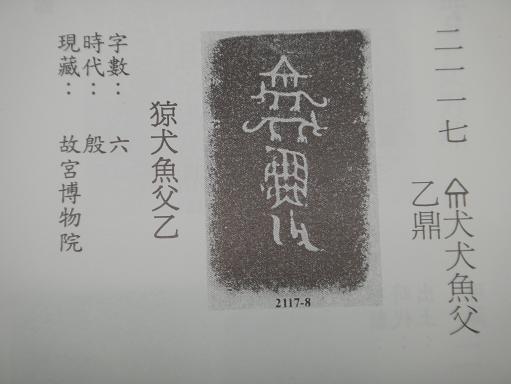 二一一七
犬犬魚父
乙鼎
2117-8
猄犬魚父乙
字數：六
時代：殷
現藏：故宮博物院